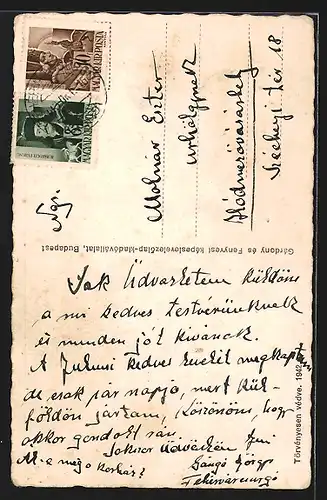 Nagys.
Molnár Eszter
urhölgynek
Hódmezővásárhely
Széchenyi tér 18
Gárdony és Fenyvesi képeslevelezőlap-kiadóvállalat, Budapest
Törvényesen védve. 1942
MAGYAR KIR. POSTA
MAGYAR KIR. POSTA
Sok Üdvözletem küldöm
a mi kedves testvérünknek
és minden jót kívánok.
A Julusi kedves levelét megkaptam
de csak pár napja, mert kül-
földön jártam, köszönöm, hogy
akkor gondolt rám.
Sokszor Üdvözlöm
Mi a még a korház?
György
Fehérvárcsurgó